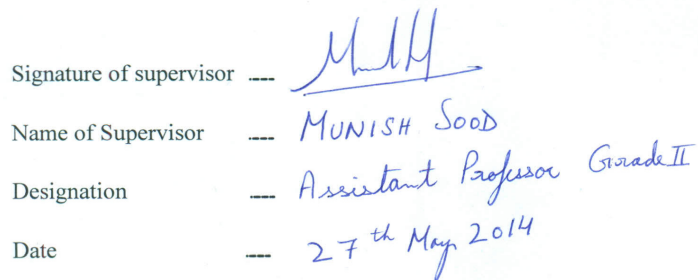 Signature of supervisor ----
Name of Supervisor ---- MUNISH SOOD
Designation ---- Assistant Professor Grade II
Date ---- 27th May 2014